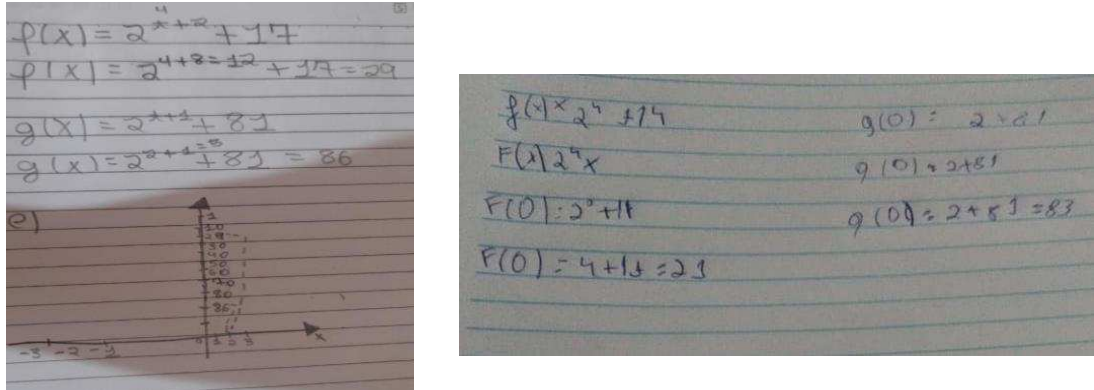 f(x) = 2^x+2 + 17
4
f(x) = 2^4+8=12 + 17 = 29
g(x) = 2^x+1 + 81
g(x) = 2^2+1=5 + 81 = 86
e)
1
10
30
40
50
60
70
80
86
-3 -2 -1 0 1 2 3
x
f(x) x 2^4 +14
F(x) 2^4 x
F(0) = 2^0 +1
F(0) = 4+17 = 21
g(0) = 2 + 81
g(0) = 2+81
g(0) = 2+81 = 83